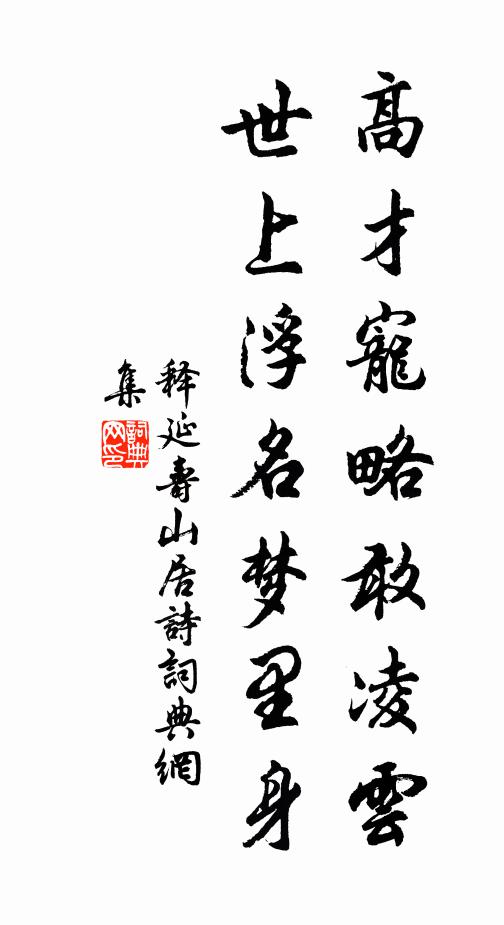 高才寵略敢凌雲
世上浮名梦里身
释延壽山居詩詞典網
集
詞典
网印